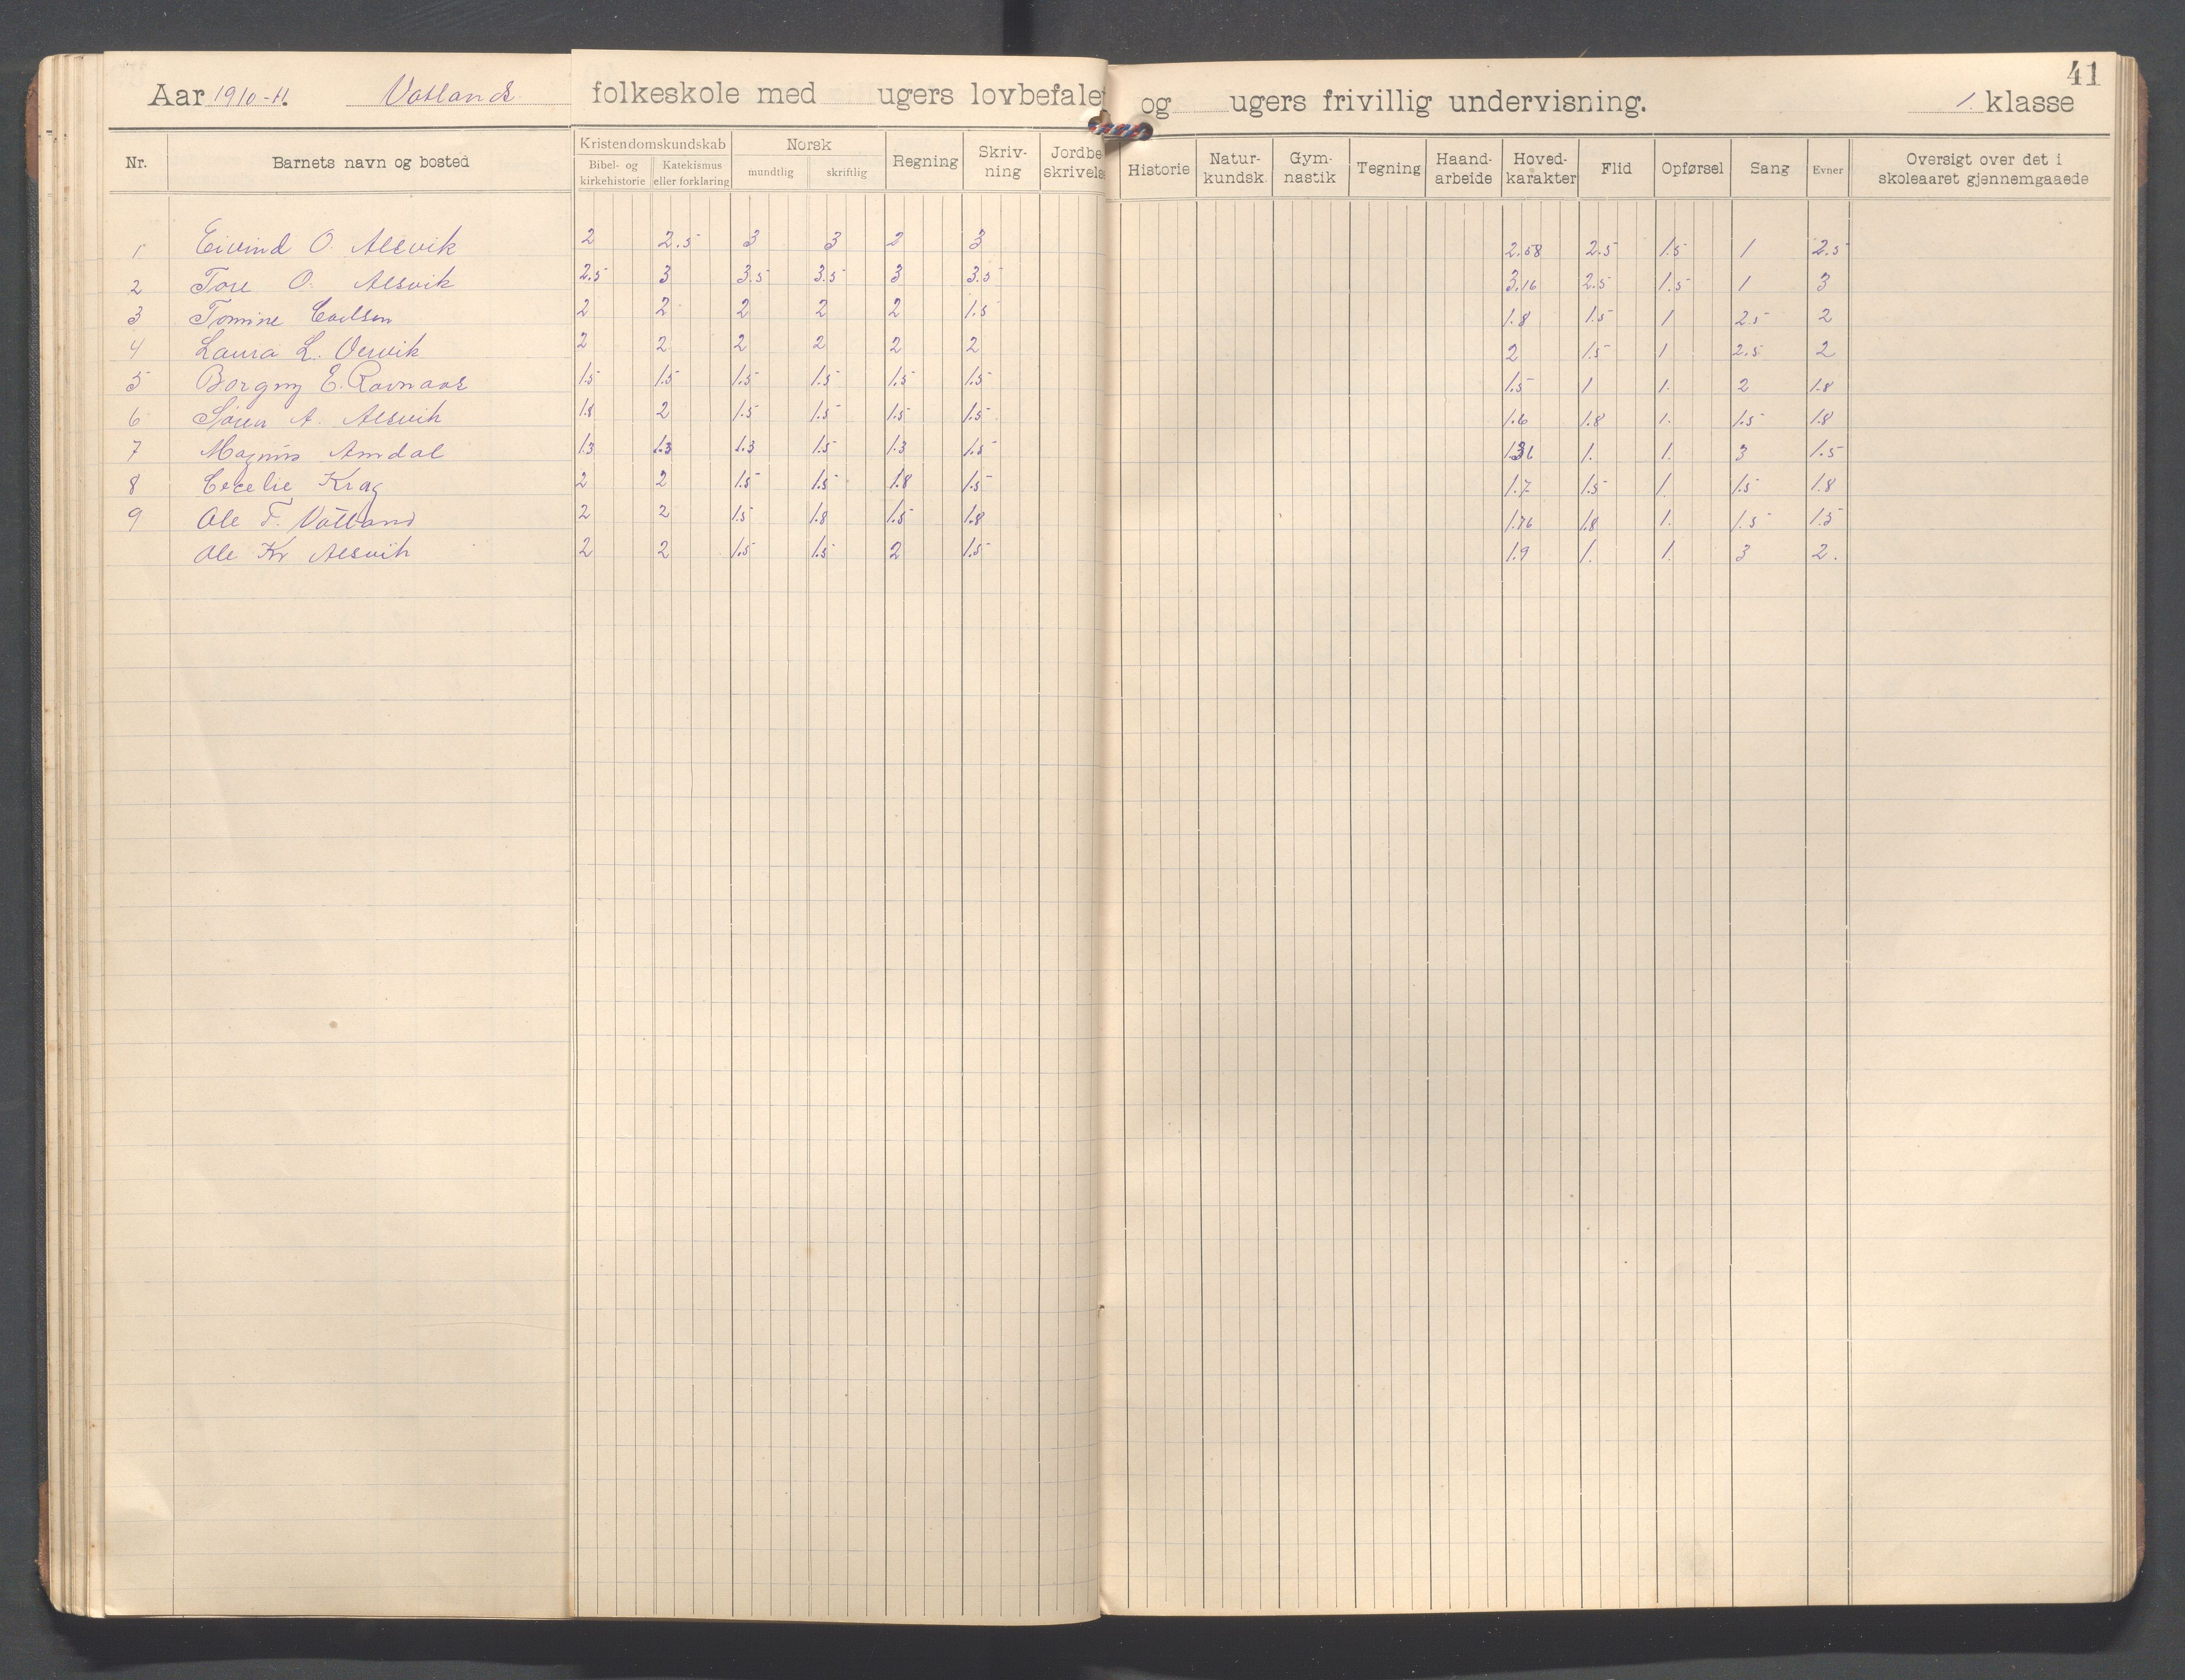 41
Aar 1910-11. Vatlands folkeskole med ugers lovbefalet og ugers frivillig undervisning. 1. klasse
Nr. Barnets navn og bosted Kristendomskundskab Bibel- og kirkehistorie Katekismus eller forklaring Norsk mundtlig skriftlig Regning Skriv-ning Jordbe skrivels Historie Natur-kundsk. Gym-nastik Tegning Haand-arbeide Hoved-karakter Flid Opførsel Sang Evner Oversigt over det i skoleaaret gjennemgaaede
1 Eivind O. Alsvik 2 2.5 3 3 2 3 2.58 2.5 1.5 1 2.5
2 Tore O. Alsvik 2.5 3 3.5 3.5 3 3.5 3.16 2.5 1.5 1 3
3 Tomine Carlsen 2 2 2 2 2 1.5 1.8 1.5 1 2.5 2
4 Laura L. 2 2 2 2 2 2 2 1.5 1 2.5 2
5 Borgny E. Ravnaas 1.5 1.5 1.5 1.5 1.5 1.5 1.5 1 1. 2 1.8
6 Søren A. Alsvik 1.8 2 1.5 1.5 1.5 1.5 1.6 1.8 1. 1.5 1.8
7 Magnus Amdal 1.3 1.3 1.3 1.5 1.3 1.5 1.36 1. 1. 3 1.5
8 Cecelie Krag 2 2 1.5 1.5 1.8 1.5 1.7 1.5 1. 1.5 1.8
9 Ole T. Vatland 2 2 1.5 1.8 1.5 1.8 1.76 1.8 1. 1.5 1.5
Ole Kr Alsvik 2 2 1.5 1.5 2 1.5 1.9 1. 1. 3 2.